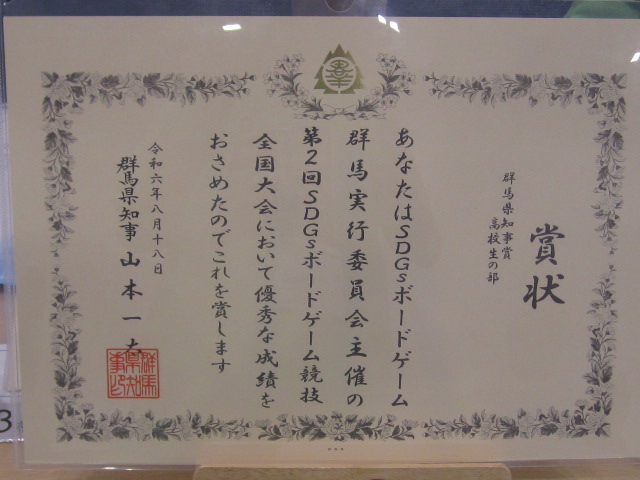 賞状
群馬県知事賞
高校生の部
あなたはSDGsボードゲーム
群馬実行委員会主催の
第2回SDGsボードゲーム競技
全国大会において優秀な成績を
おさめたのでこれを賞します
令和六年八月十八日
群馬県知事 山本一太
群馬県知事印
3